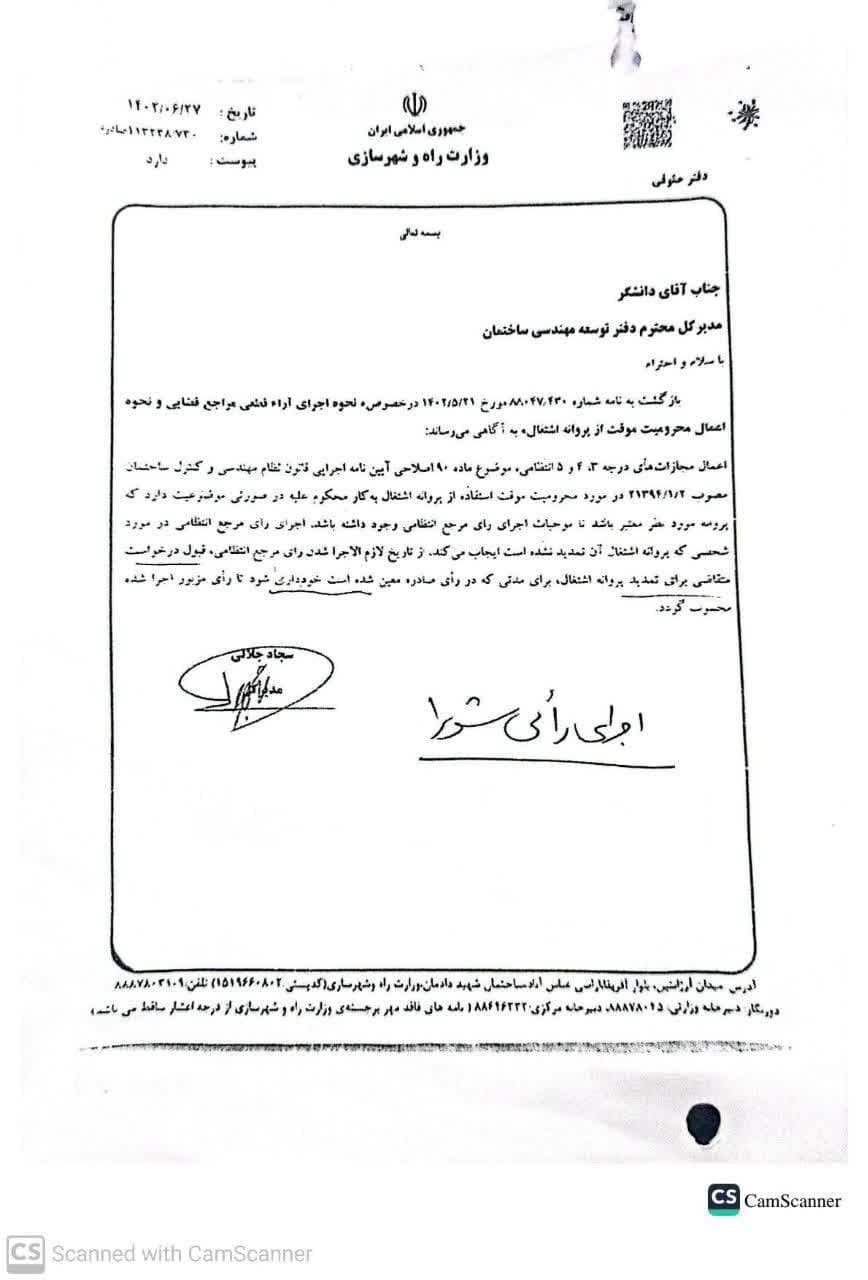 تاریخ : ۱۴۰۲/۰۶/۲۷
شماره: ۱۱۳۲۳۸/۷۳۰صادره
پیوست : دارد
جمهوری اسلامی ایران
وزارت راه و شهرسازی
دفتر حقوقی
بسمه تعالی
جناب آقای دانشگر
مدیرکل محترم دفتر توسعه مهندسی ساختمان
با سلام و احترام
بازگشت به نامه شماره ۸۸۰۴۷/۴۳۰ مورخ ۱۴۰۲/۵/۲۱ درخصوص« نحوه اجرای آراء قطعی مراجع قضایی و نحوه
اعمال محرومیت موقت از پروانه اشتغال» به آگاهی می‌رساند:
اعمال مجازات‌های درجه ۳، ۴ و ۵ انتظامی، موضوع ماده ۹۰اصلاحی آیین نامه اجرایی قانون نظام مهندسی و کنترل ساختمان
مصوب ۲۱۳۹۴/۱/۲ در مورد محرومیت موقت استفاده از پروانه اشتغال به‌کار محکوم علیه در صورتی موضوعیت دارد که
پروانه مورد نظر معتبر باشد تا موجبات اجرای رای مرجع انتظامی وجود داشته باشد. اجرای رای مرجع انتظامی در مورد
شخصی که پروانه اشتغال آن تمدید نشده است ایجاب می‌کند، از تاریخ لازم الاجرا شدن رای مرجع انتظامی، قبول درخواست
متقاضی برای تمدید پروانه اشتغال، برای مدتی که در رأی صادره معین شده است خودداری شود تا رأی مزبور اجرا شده
محسوب گردد.
سجاد جلالی
مدیرکل
اجرای رأی شورا
آدرس: میدان آرژانتین، بلوار آفریقا،اراضی عباس آباد،ساختمان شهید دادمان،وزارت راه وشهرسازی(کدپستی:۱۵۱۹۶۶۰۸۰۲) تلفن:۸۸۸۷۸۰۳۱۰۹
دورنگار: دبیرخانه وزارتی: ۸۸۸۷۸۰۴۵، دبیرخانه مرکزی:۸۸۶۴۶۳۳۲ ( نامه های فاقد مهر برجسته‌ی وزارت راه و شهرسازی از درجه اعتبار ساقط می باشد)
CS CamScanner
CS Scanned with CamScanner